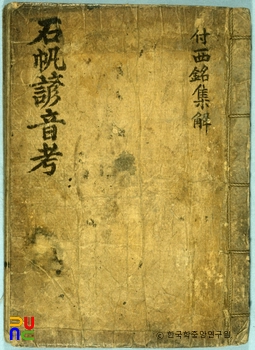 石帆諺音考
付西銘集解
PUN
ⓒ 한국학중앙연구원